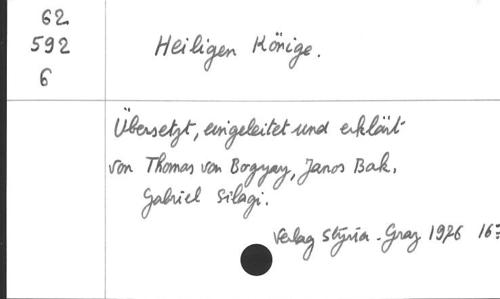 62
592
6
Heiligen Könige.
Übersetzt, eingeleitet und erklärt
von Thomas von Bogyay, Janos Bak,
Gabriel Silagi.
Verlag Styria. Graz 1976